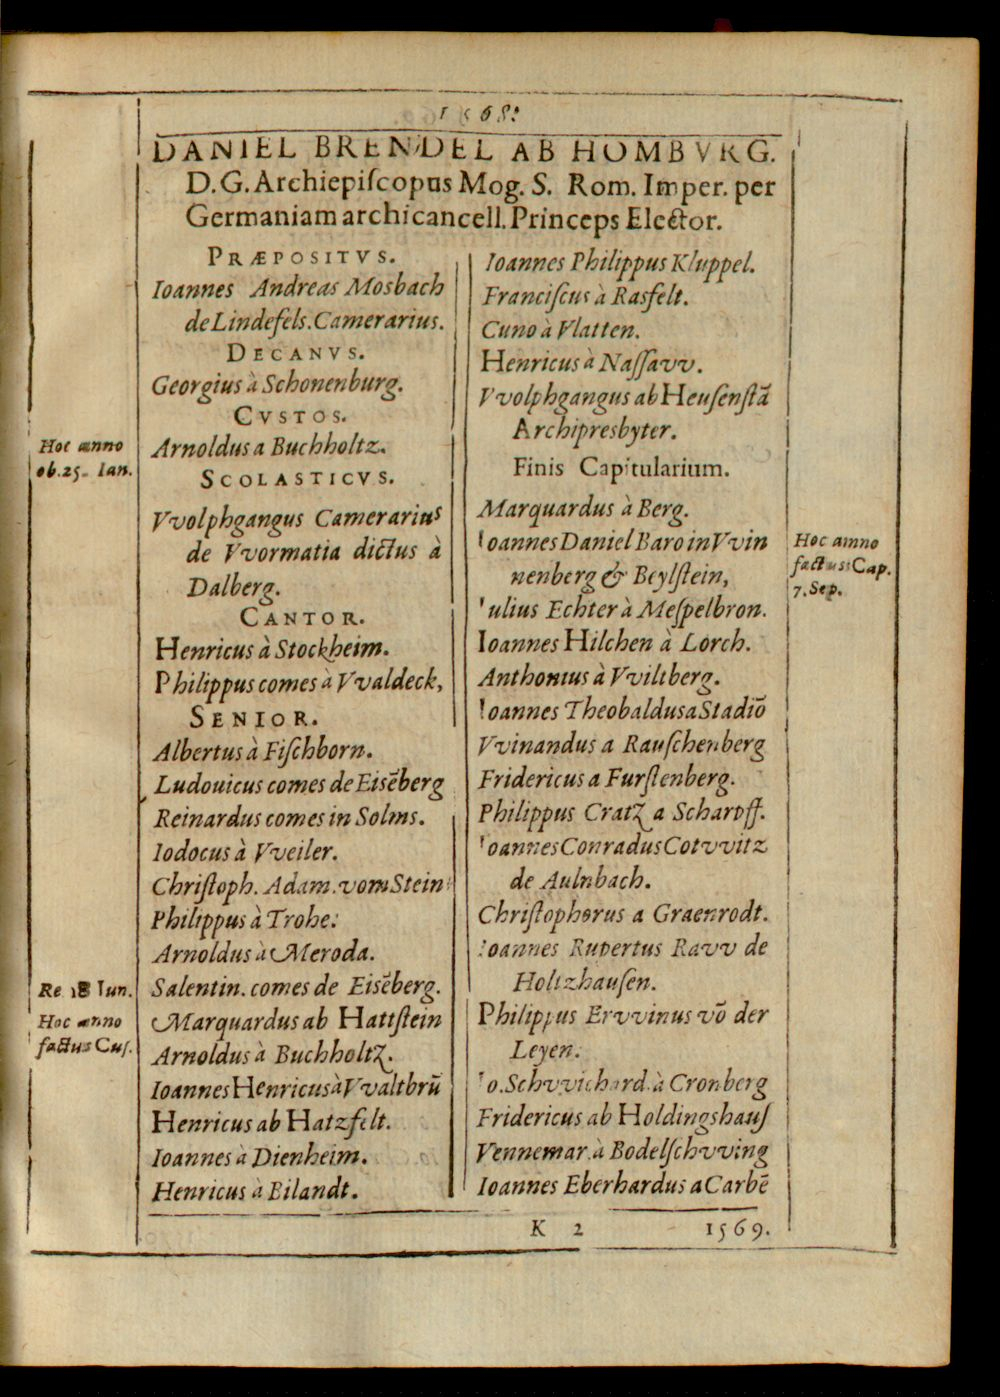 1568.
DANIEL BRENDEL AB HOMBVRG.
D.G. Archiepiſcopus Mog. S. Rom. Imper. per
Germaniam archicancell. Princeps Elector.
PRÆPOSITVS.
Ioannes Andreas Mosbach
de Lindefels. Camerarius.
DECANVS.
Georgius à Schonenburg.
CVSTOS.
Hoc anno
ob. 25. Ian.
Arnoldus a Buchholtz.
SCOLASTICVS.
Vvolphgangus Camerarius
de Vvormatia dictus à
Dalberg.
CANTOR.
Henricus à Stockheim.
Philippus comes à Vvaldeck,
SENIOR.
Albertus à Fiſchborn.
Ludouicus comes de Eisēberg
Reinardus comes in Solms.
Iodocus à Vveiler.
Chriſtoph. Adam. vom Stein
Philippus à Trohe.
Arnoldus à Meroda.
Re 18 Iun.
Salentin. comes de Eisēberg.
Hoc anno
factus Cuſ.
Marquardus ab Hattſtein
Arnoldus à Buchholtz.
Ioannes Henricus à Vvaltbrū
Henricus ab Hatzfelt.
Ioannes à Dienheim.
Henricus à Bilandt.
Ioannes Philippus Kluppel.
Franciſcus à Rasfelt.
Cuno à Vlatten.
Henricus à Naſſavv.
Vvolphgangus ab Heuſenſtā
Archipresbyter.
Finis Capitularium.
Marquardus à Berg.
Ioannes Daniel Baro in Vvin
nenberg & Beylſtein,
Hoc anno
factus Cap.
7. Sep.
Iulius Echter à Meſpelbron.
Ioannes Hilchen à Lorch.
Anthonius à Vviltberg.
Ioannes Theobaldus a Stadiō
Vvinandus a Rauſchenberg
Fridericus a Furſtenberg.
Philippus Cratz a Scharpff.
Ioannes Conradus Cotvvitz
de Aulnbach.
Chriſtophorus a Graenrodt.
Ioannes Rupertus Ravv de
Holtzhauſen.
Philippus Ervvinus vō der
Leyen.
Io. Schvvichard. à Cronberg
Fridericus ab Holdingshauſ
Vennemar. à Bodelſchvving
Ioannes Eberhardus a Carbē
K 2
1569.